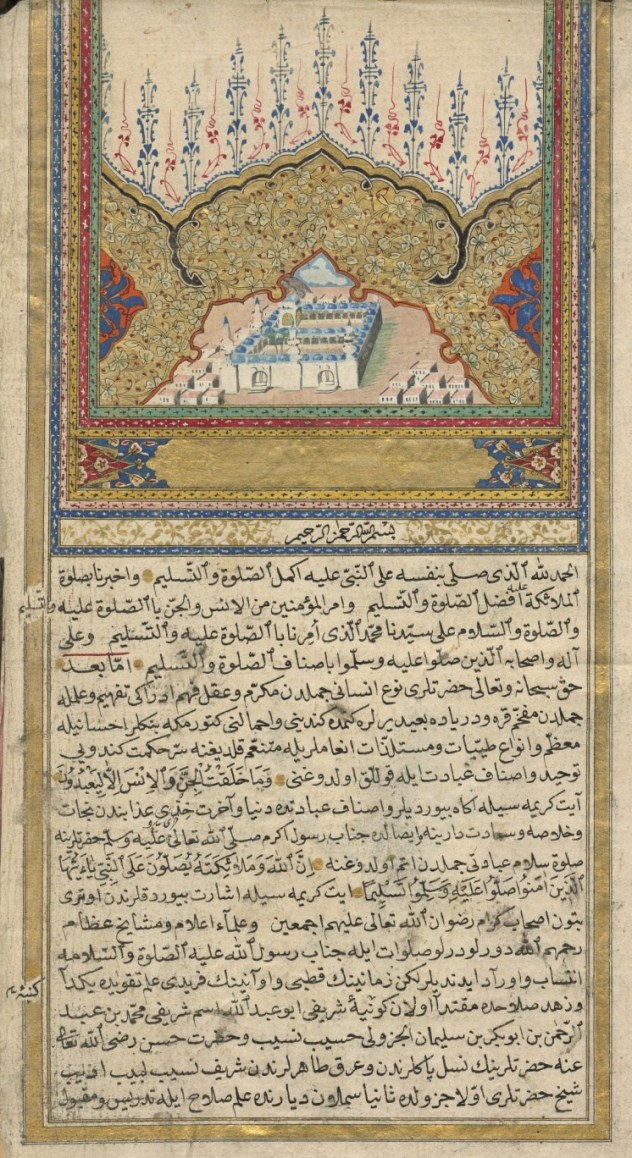 بسم الله الرحمن الرحيم
الحمد لله الذى صلى بنفسه على النبى عليه اكمل الصلوة والتسليم واخبرنا بصلوة
الملائكة عليه افضل الصلوة والتسليم وامر المؤمنين من الانس والجن با الصلوة عليه والتسليم
والصلوة والسلام على سيدنا محمد الذى أمرنا با الصلوة عليه والتسليم وعلى
آله واصحابه الذين صلوا عليه وسلموا باصناف الصلوة والتسليم امّا بعد
حق سبحانه وتعالى حضرتلرى نوع انسانى جمله دن مكرم وعقل فهم ادراكى تفهيم وعلمله
جمله دن مفخم قره ودرياده
معظم وانواع طيبات ومستلذات انعاملريله متنعم قلديغنه سر حكمت كندويى
توحيد واصناف عبادت ايله قوللق اولدوغنى وَمَا خَلَقْتُ الْجِنَّ وَالْاِنْسَ اِلَّا لِيَعْبُدُونَ
آيت كريمه سيله اكاه بيورديلر واصناف عبادتده دنيا وآخرت خذلرى عذابندن نجات
وخلاصه وسعادت دارينه ايصالده جناب رسول اكرم صلى الله تعالى عليه وسلم حضرتلرينه
صلوة سلام عبادتى جمله دن اتم اولدوغنه اِنَّ اللهَ وَمَلَائِكَتَهُ يُصَلُّونَ عَلَى النَّبِىِّ يَا اَيُّهَا
الَّذِينَ اٰمَنُوا صَلُّوا عَلَيْهِ وَسَلِّمُوا تَسْلِيمًا ايت كريمه سيله اشارت بيوردقلرندن اوترى
بتون اصحاب كرام رضوان الله تعالى عليهم اجمعين وعلماء اعلام ومشايخ عظام
رحمهم الله دورلو درلو صلوات ايله جناب رسول الله عليه الصلوة والسلامه
انتساب واوراد ايدنديلر لكن زمانينك قطبى واوانينك فريدى علم تقويده يكدا
وزهد صلاحده مقتدا اولان كنيهٔ شريفى ابو عبد الله اسم شريفى محمد بن عبد
الرحمن بن ابو بكر بن سليمان الجزولى حسيب نسيب وحضرت حسن رضى الله تعالى
عنه حضرتلرينك نسل پاكلرندن وعرق طاهرلرندن شريف نسيب لبيب اديب
شيخ حضرتلرى اولا جزولده ثانيا سملان ديارنده علم صلاح ايله تدريس ومقبول